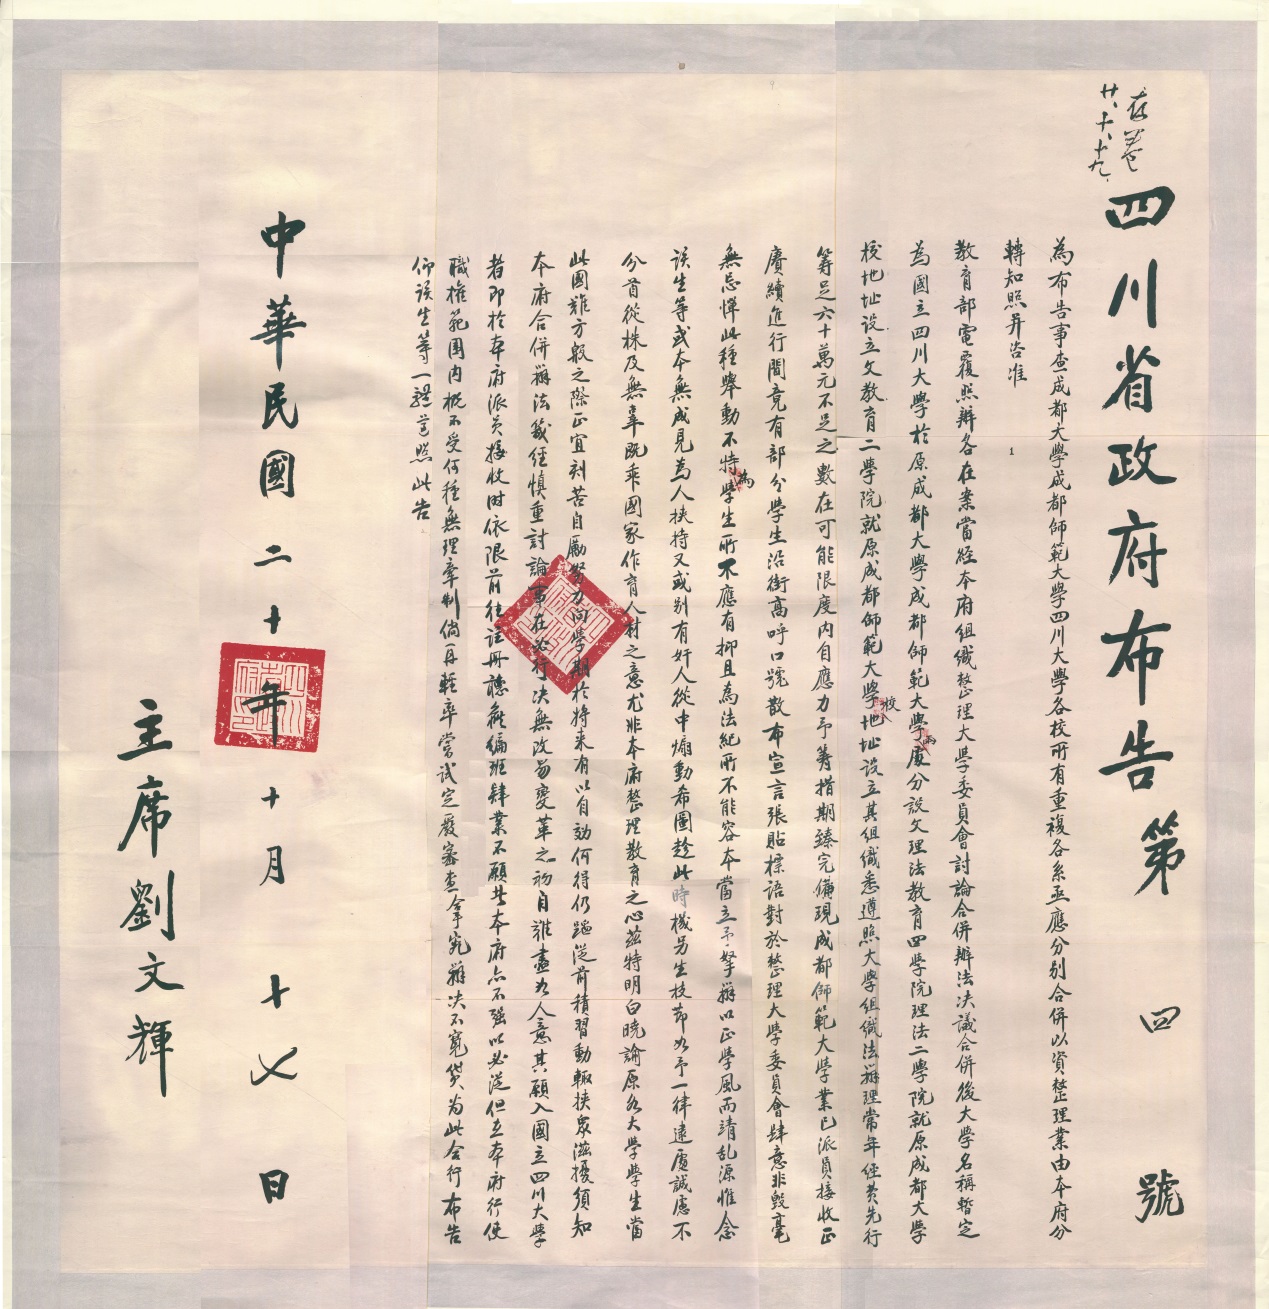 存卷
廿、十、十九、
四川省政府布告第四號
為布告事查成都大學成都師範大學四川大學各校所有重複各系亟應分別合併以資整理業由本府分
轉知照并咨准
教育部電覆照辦各在案當經本府組織整理大學委員會討論合併辦法決議合併後大學名稱暫定
為國立四川大學於原成都大學成都師範大學兩處分設文理法教育四學院理法二學院就原成都大學
校地址設立文教育二學院就原成都師範大學校地址設立其組織悉遵照大學組織法辦理常年經費先行
籌足六十萬元不足之數在可能限度內自應力予籌措期臻完備現成都師範大學業已派員接收正
賡續進行間竟有部分學生沿街高呼口號散布宣言張貼標語對於整理大學委員會肆意非毀毫
無忌憚此種舉動不特為學生所不應有抑且為法紀所不能容本當立予拏辦以正學風而靖乱源惟念
該生等或本無成見為人挾持又或別有奸人從中煽動希圖趁此時機另生枝節如予一律逮處誠慮不
分首從株及無辜既乖國家作育人材之意尤非本府整理教育之心茲特明白曉諭原各大學學生當
此國難方殷之際正宜刻苦自勵努力向學期於將來有以自効何得仍蹈從前積習動輒挾眾滋擾須知
本府合併辦法幾經慎重討論事在必行決無改易變革之初自難盡如人意其願入國立四川大學
者即於本府派員接收時依限前往註冊聽候編班肄業不願者本府亦不強以必從但在本府行使
職權範圍內概不受何種無理牽制倘再輕率嘗試定嚴審查拿究辦決不寬貸為此合行布告
仰該生等一體莒照此告
1
中華民國二十年十月十七日
主席劉文輝